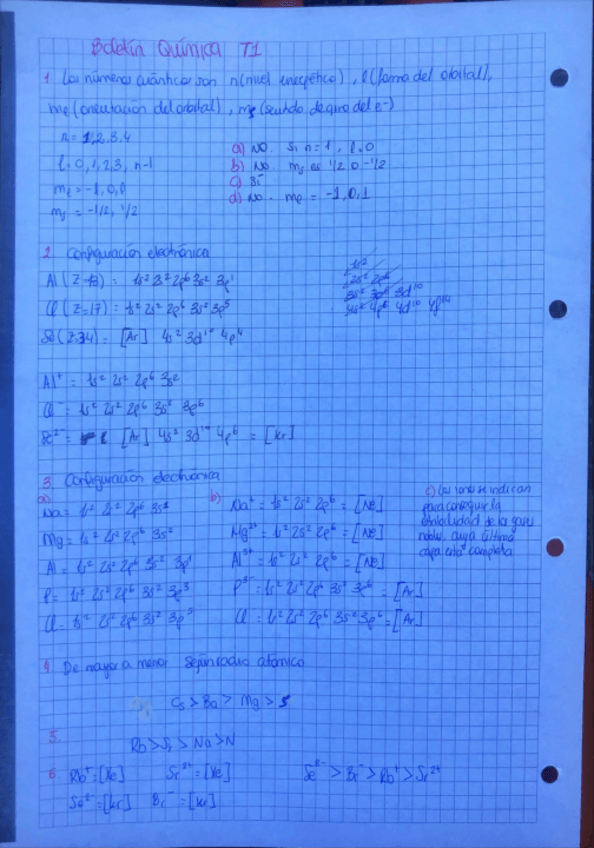 Boletín Química T1
1. Los números cuánticos son n(nivel energético), l(forma del orbital),
mℓ(orientación del orbital), ms(sentido de giro del e-)
n = 1,2,3,4
l = 0,1,2,3, n-1
mℓ = -1,0,1
ms = -1/2, 1/2
a) NO. Si n=1, l=0
b) No. ms es 1/2 o -1/2
c) Sí
d) No. mℓ = -1,0,1
2. Configuración electrónica
Al (Z=13) = 1s² 2s² 2p⁶ 3s² 3p¹
Cl (Z=17) = 1s² 2s² 2p⁶ 3s² 3p⁵
Se (Z=34) = [Ar] 4s² 3d¹⁰ 4p⁴
1s²
2s² 2p⁶
3s² 3p⁶ 3d¹⁰
4s² 4p⁶ 4d¹⁰ 4f¹⁴
Al⁺ = 1s² 2s² 2p⁶ 3s²
Cl⁻ = 1s² 2s² 2p⁶ 3s² 3p⁶
Se²⁻ = [Ar] 4s² 3d¹⁰ 4p⁶ = [Kr]
3. Configuración electrónica
a)
Na = 1s² 2s² 2p⁶ 3s¹
Mg = 1s² 2s² 2p⁶ 3s²
Al = 1s² 2s² 2p⁶ 3s² 3p¹
P = 1s² 2s² 2p⁶ 3s² 3p³
Cl = 1s² 2s² 2p⁶ 3s² 3p⁵
b) Na⁺ = 1s² 2s² 2p⁶ = [Ne]
Mg²⁺ = 1s² 2s² 2p⁶ = [Ne]
Al³⁺ = 1s² 2s² 2p⁶ = [Ne]
P³⁻ = 1s² 2s² 2p⁶ 3s² 3p⁶ = [Ar]
Cl⁻ = 1s² 2s² 2p⁶ 3s² 3p⁶ = [Ar]
c) Los iones se indican
para conseguir la
estabilidad de los gases
nobles, cuya última
capa está completa
4. De mayor a menor según radio atómico
Cs > Ba > Mg > S
5.
Rb > Sr > Na > N
6. Rb⁺ = [Xe] Sr²⁺ = [Xe] Se²⁻ > Br⁻ > Rb⁺ > Sr²⁺
Se²⁻ = [Kr] Br⁻ = [Kr]